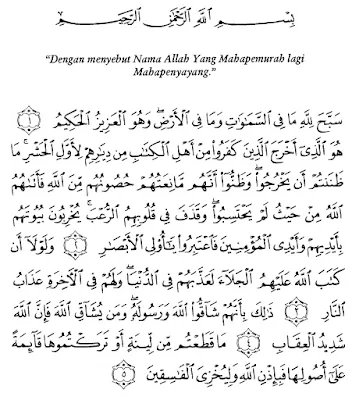 بِسْمِ اللَّهِ الرَّحْمَٰنِ الرَّحِيمِ
“Dengan menyebut Nama Allah Yang Mahapemurah lagi
Mahapenyayang.”
سَبَّحَ لِلَّهِ مَا فِي السَّمَٰوَٰتِ وَمَا فِي الْأَرْضِ ۖ وَهُوَ الْعَزِيزُ الْحَكِيمُ ١
هُوَ الَّذِي أَخْرَجَ الَّذِينَ كَفَرُوا مِنْ أَهْلِ الْكِتَٰبِ مِن دِيَٰرِهِمْ لِأَوَّلِ الْحَشْرِ ۚ مَا
ظَنَنتُمْ أَن يَخْرُجُوا ۖ وَظَنُّوا أَنَّهُم مَّانِعَتُهُمْ حُصُونُهُم مِّنَ اللَّهِ فَأَتَىٰهُمُ
اللَّهُ مِنْ حَيْثُ لَمْ يَحْتَسِبُوا ۖ وَقَذَفَ فِي قُلُوبِهِمُ الرُّعْبَ ۚ يُخْرِبُونَ بُيُوتَهُم
بِأَيْدِيهِمْ وَأَيْدِي الْمُؤْمِنِينَ فَاعْتَبِرُوا يَٰأُولِي الْأَبْصَٰرِ ٢ وَلَوْلَا أَن
كَتَبَ اللَّهُ عَلَيْهِمُ الْجَلَاءَ لَعَذَّبَهُمْ فِي الدُّنْيَا ۖ وَلَهُمْ فِي الْآخِرَةِ عَذَابُ
النَّارِ ٣ ذَٰلِكَ بِأَنَّهُمْ شَاقُّوا اللَّهَ وَرَسُولَهُ ۖ وَمَن يُشَاقِّ اللَّهَ فَإِنَّ اللَّهَ
شَدِيدُ الْعِقَابِ ٤ مَا قَطَعْتُم مِّن لِّينَةٍ أَوْ تَرَكْتُمُوهَا قَائِمَةً
عَلَىٰ أُصُولِهَا فَبِإِذْنِ اللَّهِ وَلِيُخْزِيَ الْفَٰسِقِينَ ٥